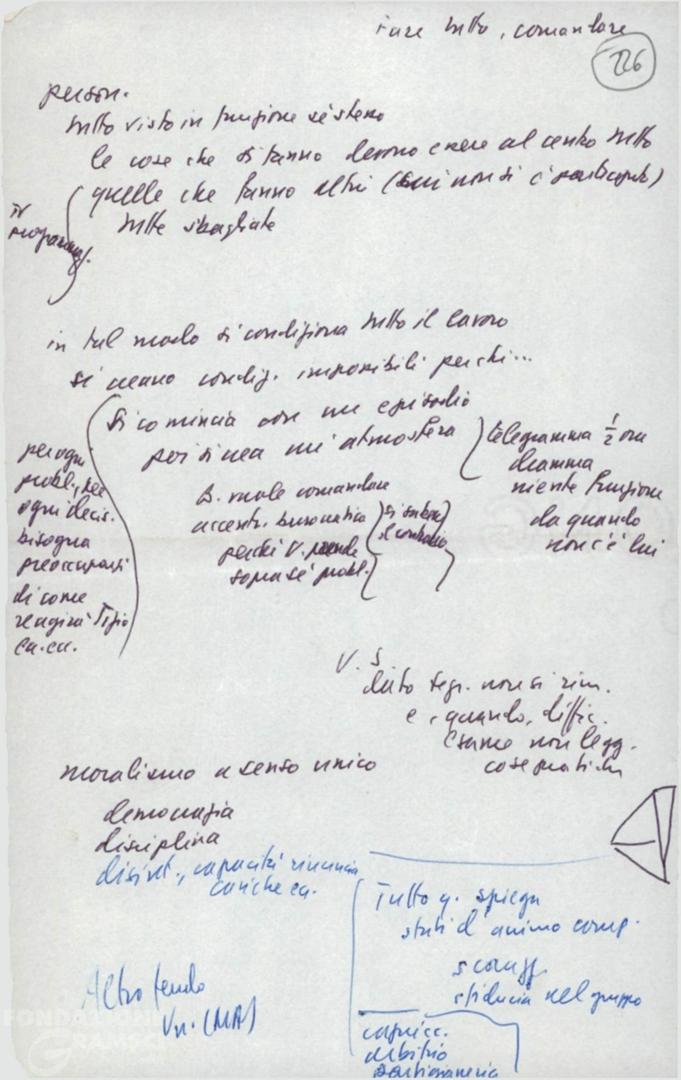 fare tutto, comandare
226
person.
tutto visto in funzione sé stesso
le cose che si fanno devono essere al centro tutto
quelle che fanno altri (cui non si è partecipato)
tutte sbagliate
in tal modo si condiziona tutto il lavoro
si creano condiz. impossibili perché...
si comincia con un episodio
poi si crea un'atmosfera
telegramma ½ ora
dramma
niente funziona
da quando
non c'è lui
per ogni
probl., per
ogni decis.
bisogna
preoccuparsi
di come
reagirà Tizio
ec. ec.
B. vuole comandare
accentr. burocratico
perché V. prende
sopra sé probl.
si
il controllo
V. S.
dato segr. non si riun.
e, quando, diffic.
esame non legg.
cose pratiche
moralismo a senso unico
democrazia
disciplina
disint., capacità rinuncia
cariche ec.
Tutto q. spiega
stati d'animo comp.
scoragg.
sfiducia nel gruppo
capricc.
arbitrio
partigianeria
Altro
Vn. (MA)
FONDAZIONE
GRAMSCI